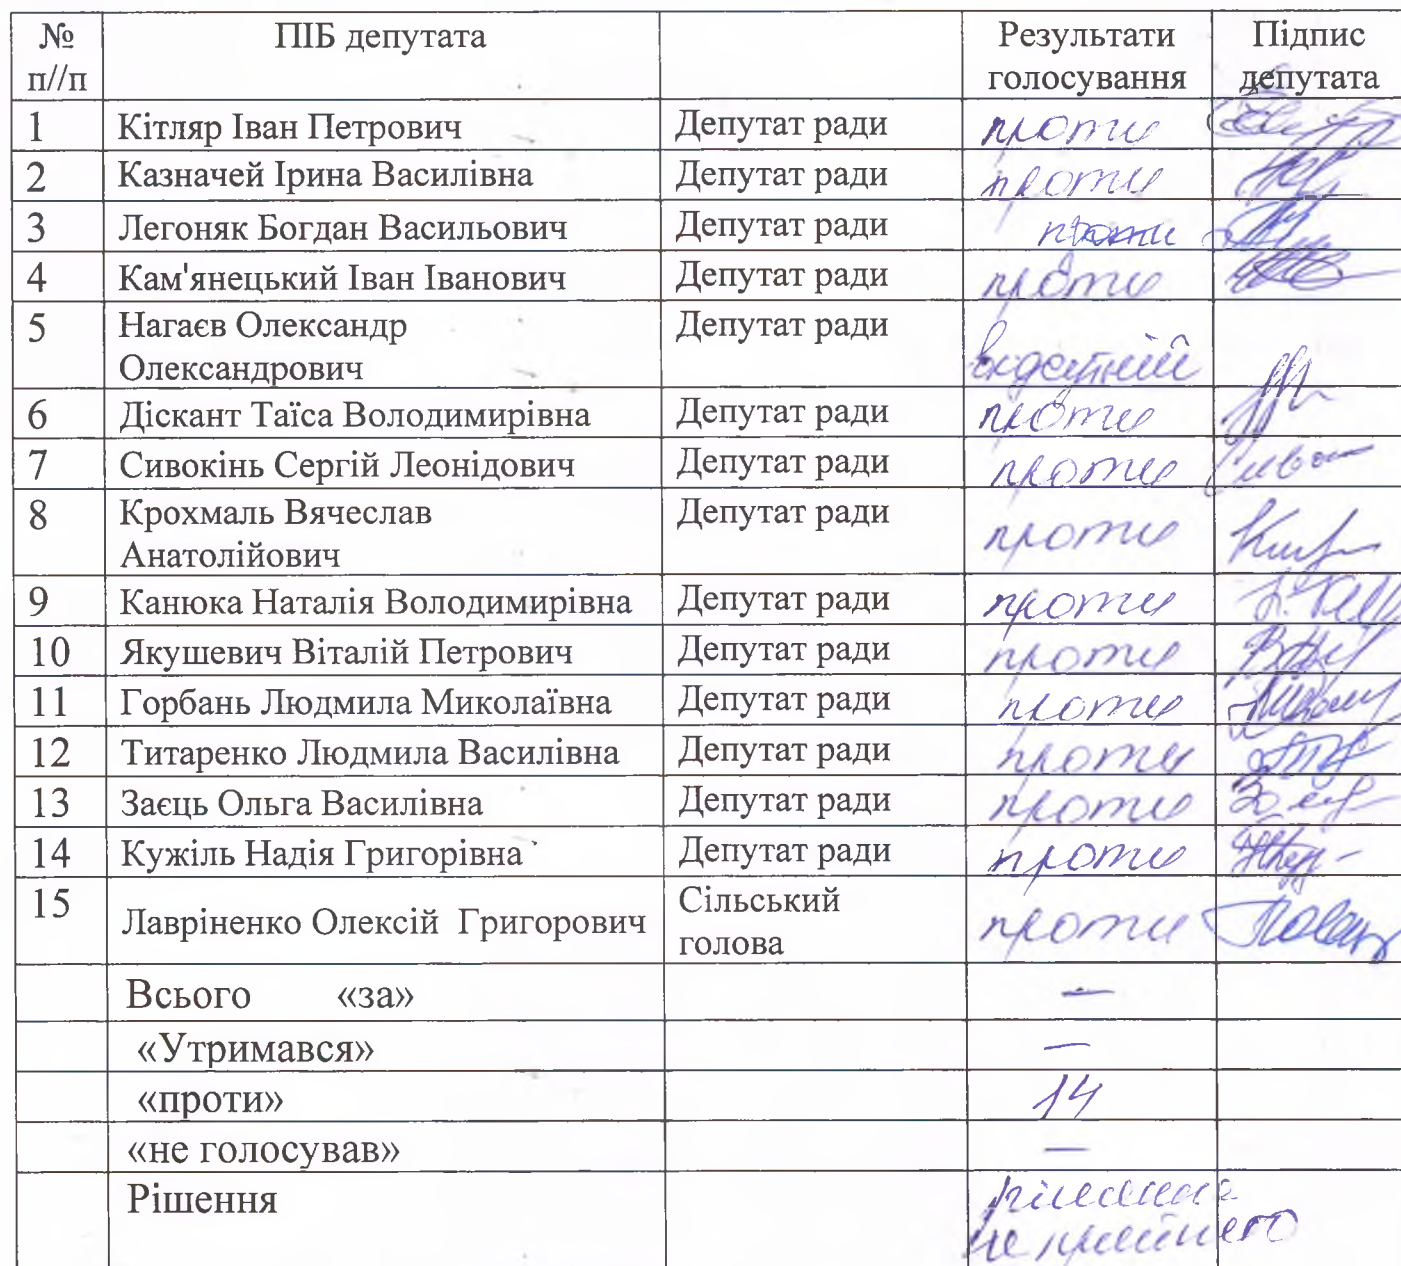 № п//п ПІБ депутата Результати голосування Підпис депутата
1 Кітляр Іван Петрович Депутат ради проти
2 Казначей Ірина Василівна Депутат ради проти
3 Легоняк Богдан Васильович Депутат ради проти
4 Кам'янецький Іван Іванович Депутат ради проти
5 Нагаєв Олександр Олександрович Депутат ради відсутній
6 Діскант Таїса Володимирівна Депутат ради проти
7 Сивокінь Сергій Леонідович Депутат ради проти
8 Крохмаль Вячеслав Анатолійович Депутат ради проти
9 Канюка Наталія Володимирівна Депутат ради проти
10 Якушевич Віталій Петрович Депутат ради проти
11 Горбань Людмила Миколаївна Депутат ради проти
12 Титаренко Людмила Василівна Депутат ради проти
13 Заєць Ольга Василівна Депутат ради проти
14 Кужіль Надія Григорівна Депутат ради проти
15 Лавріненко Олексій Григорович Сільський голова проти
Всього «за» —
«Утримався» —
«проти» 14
«не голосував» —
Рішення рішення
не прийнято